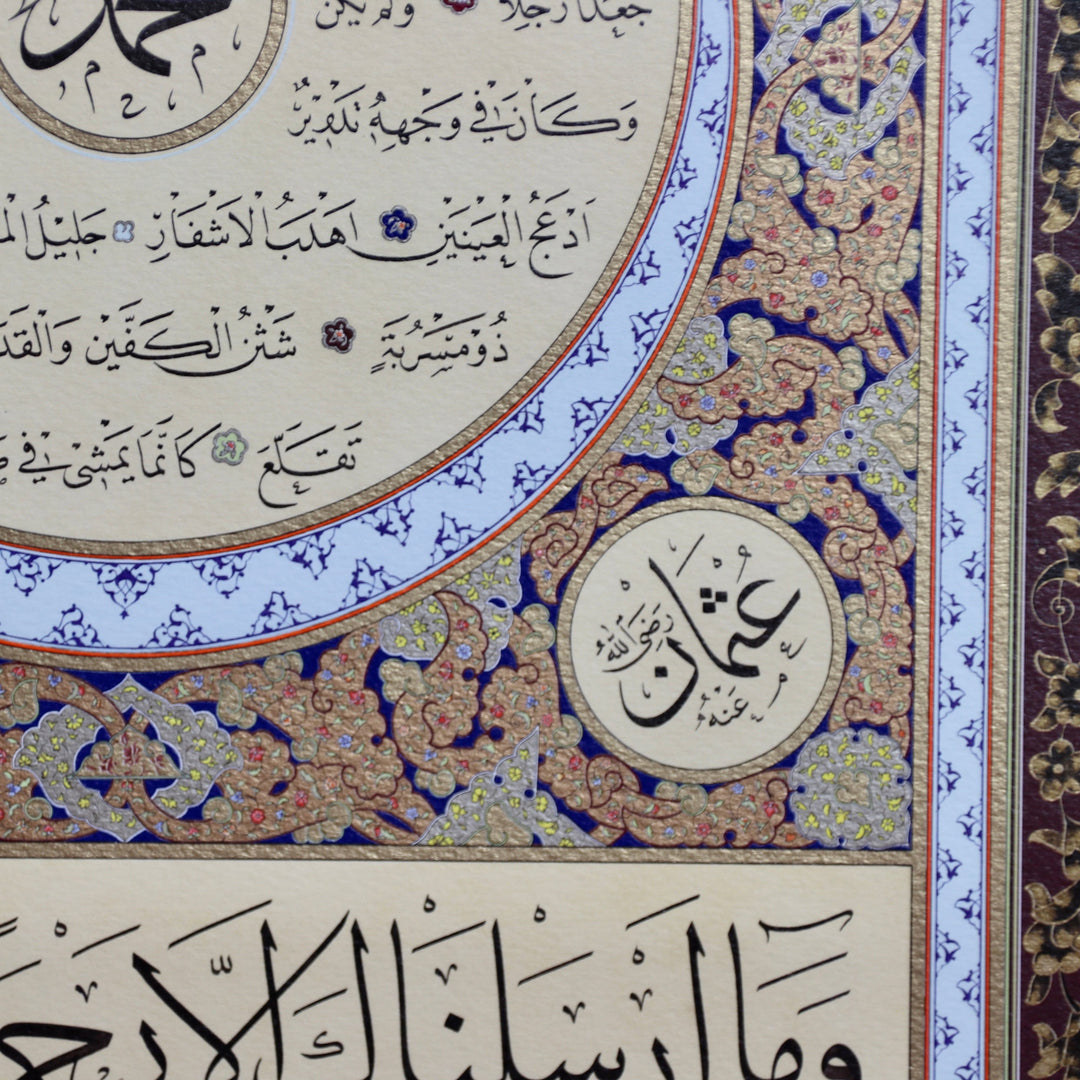 محمد
جعدا رجلا ولم يكن
وَكَانَ فِي وَجْهِهِ تَدْوِيْرٌ
اَدْعَجُ الْعَيْنَيْنِ اَهْدَبُ الْاَشْفَارِ جَلِيْلُ
ذُوْمَسْرُبَةٍ شَثْنُ الْكَفَّيْنِ
تَقَلَّعَ كَاَنَّمَا يَمْشِي فِي
عُثْمَان
رَضِيَ اللّٰهُ
عَنْهُ
وَمَا اَرْسَلْنَاكَ اِلَّا